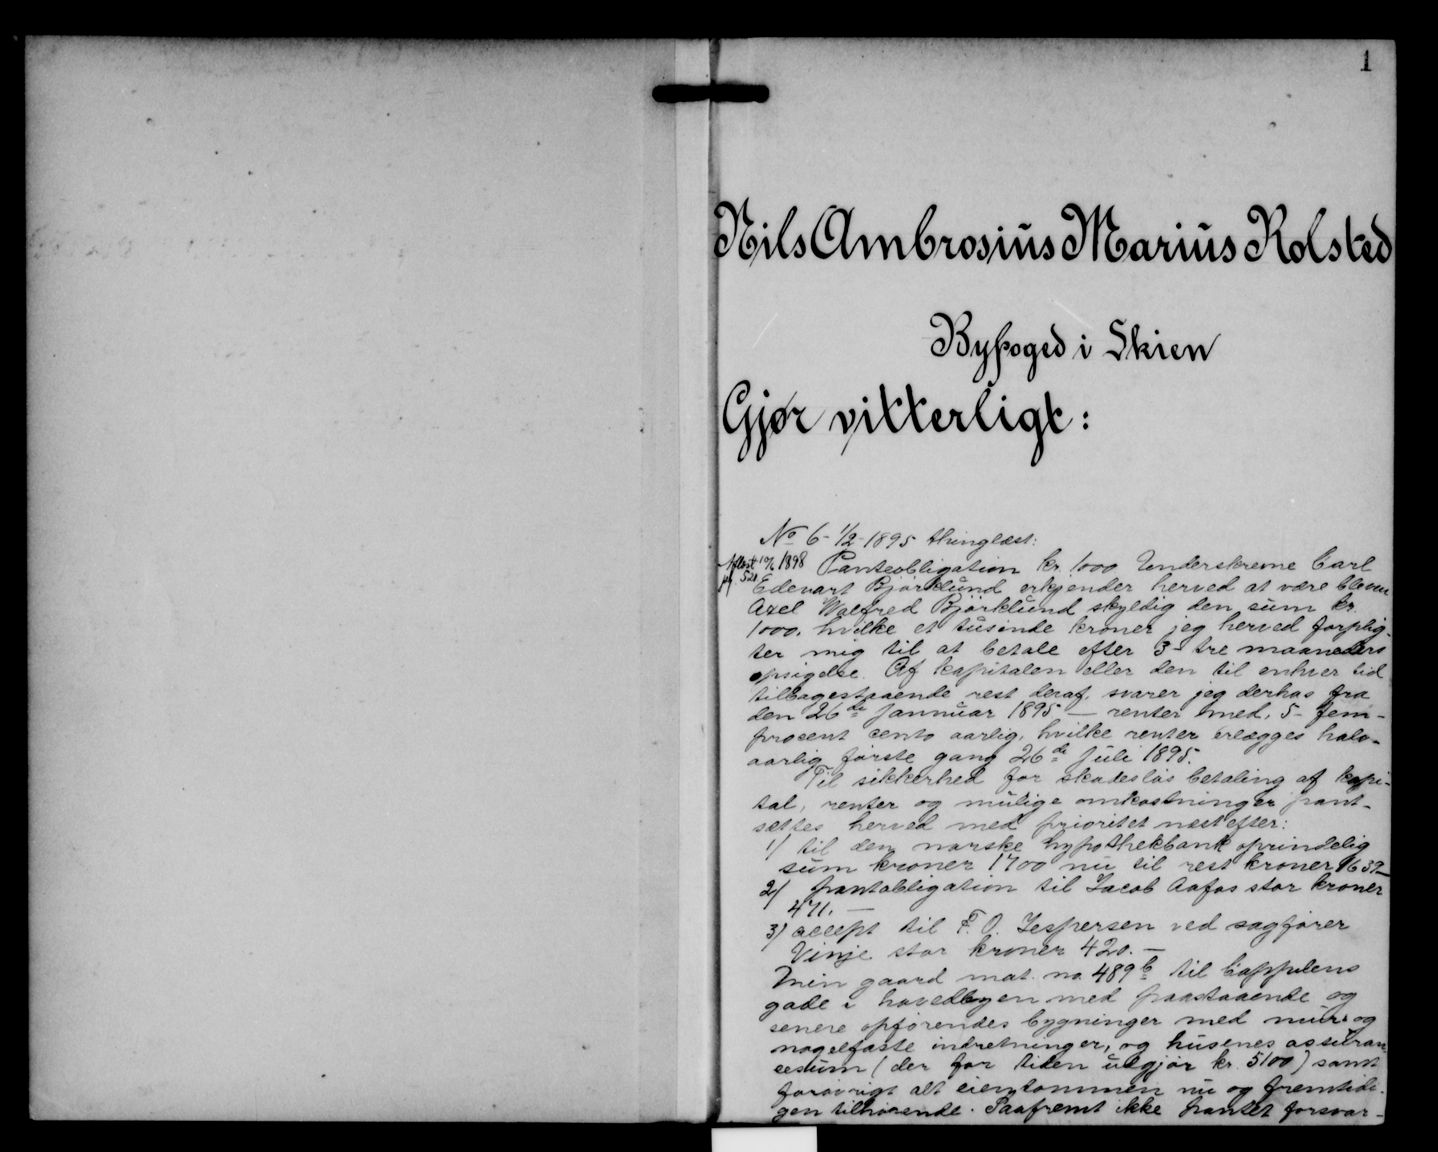 1
Nils Ambrosius Marius Rolsted
Byfoged i Skien
Gjør vitterligt:
No 6 - 1/2 - 1895 thinglæst:
Aflæst 10/6 1898
Panteobligation kr. 1000 Underskrevne Carl
Edevart Bjørklund erkjender herved at være bleven
Axel Walfred Bjørklund skyldig den sum kr.
1000. hvilke et tusinde kroner jeg herved forplig-
ter mig til at betale efter 3 - tre maaneders
opsigelse. Af kapitalen eller den til enhver tid
tilbagestaaende rest deraf, svarer jeg derhos fra
den 26de Jannuar 1895 — renter med, 5 - fem -
procent cento aarlig, hvilke renter erlægges halv-
aarlig første gang 26de Juli 1895.
Til sikkerhed for skadesløs betaling af kapi-
tal, renter og mulige omkostninger pant-
sættes herved med prioritet næstefter:
1/ til den norske hypothekbank oprindelig
sum kroner 1700 nu til rest kroner 1639 —
2/ pantobligation til Jacob Aafos stor kroner
471. —
3/ accept til F. O. Jespersen ved sagfører
Vinje stor kroner 420. —
Min gaard mat. no. 489b til Cappelens
gade i hovedbyen med paastaaende og
senere opførendes bygninger med mur- og
nagelfaste indretninger, og husenes assuran-
cesum (der for tiden udgjør kr. 5100) samt
forøvrigt alt eiendommen nu og fremtidi-
gen tilhørende. Saafremt ikke pantet forsvar-